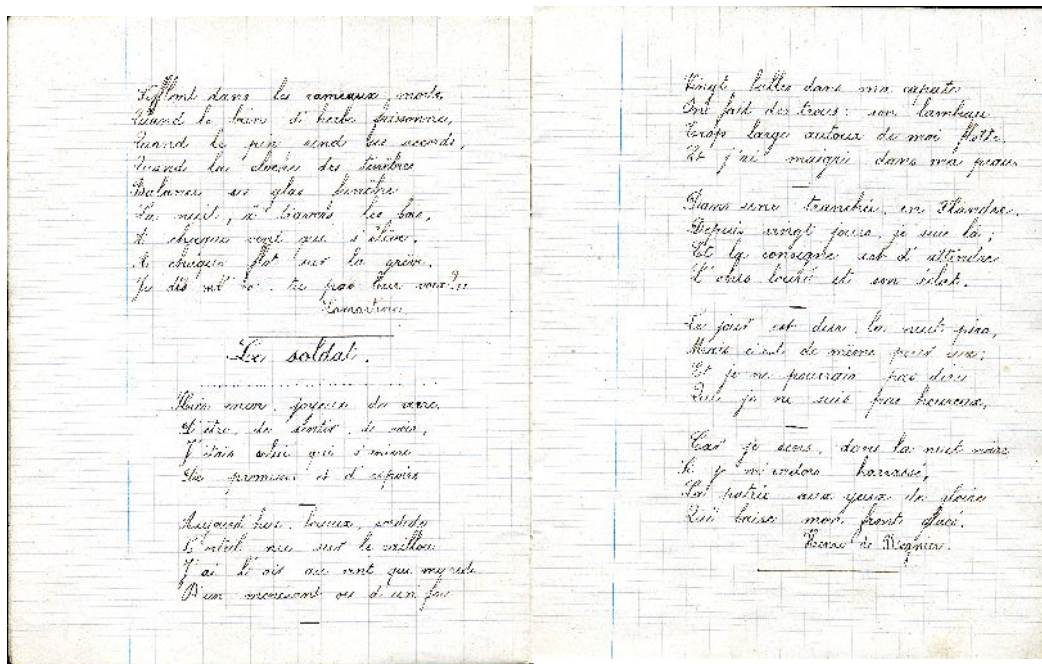 Sifflent dans les rameaux morts,
Quand le brin d'herbe frissonne,
Quand le pin rend ses accords,
Quand la cloche des ténèbres
Balance ses glas funèbres
La nuit, à travers les bois,
A chaque vent qui s'élève,
A chaque flot sur la grève,
Je dis n'est-ce pas leur voix ?
Lamartine
Le soldat.
Hier mon joyeux de vivre
D'être, de sentir, de voir,
J'étais celui qui s'enivre
De promesse et d'espoirs
Aujourd'hui, boueux, sordide
L'orteil nu sur le caillou
J'ai le au vent qui me ride
D'un menaçant ou d'un fou
Vingt balles dans ma capote
Ont fait des trous : son lambeau
Trop large autour de moi flotte,
Et j'ai maigri dans ma peau
Dans une tranchée, en Flandre,
Depuis vingt jours, je suis là ;
Et la consigne est d'attendre
L'obus lourd et son éclat.
Le jour est dur, la nuit pire,
Mais c'est de même pour eux ;
Et je ne pourrais pas dire
Que je ne suis pas heureux,
Car je sens, dans la nuit noire
Si je m'endors harassé,
La patrie aux yeux de gloire
Qui baise mon front glacé.
Henri de Régnier.